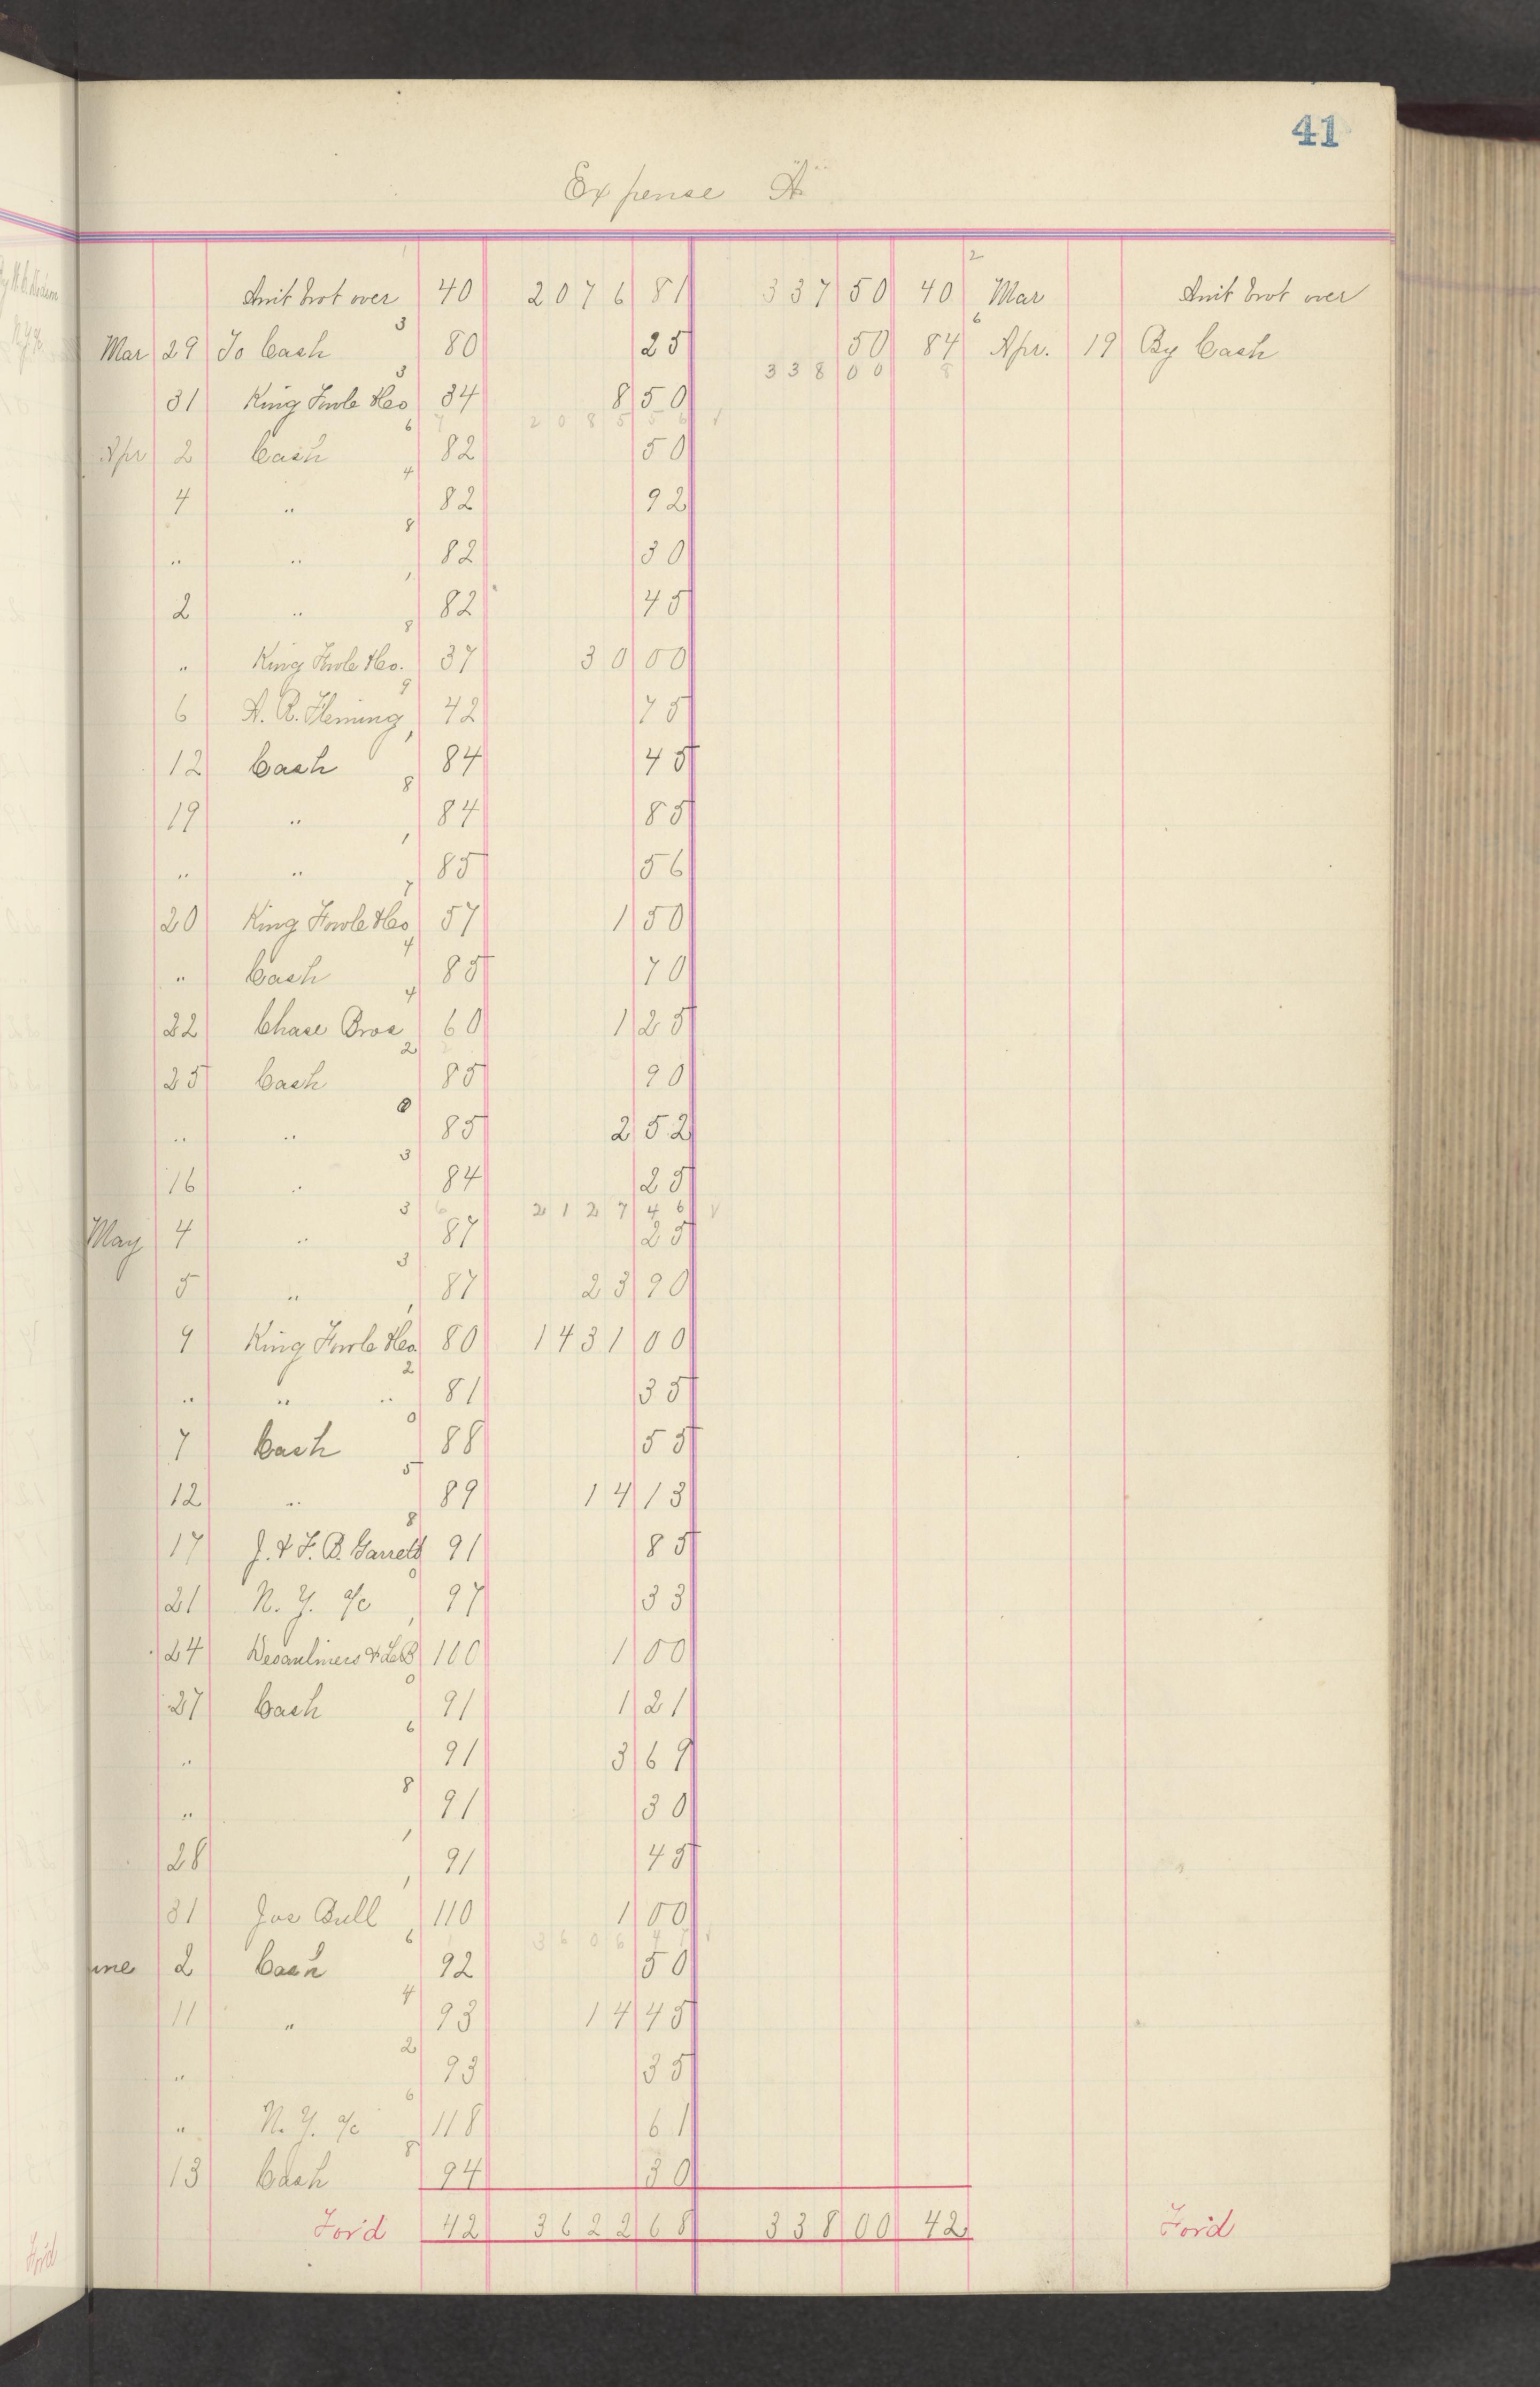 41
Expense A
Amt brot over 40 2076 81 337 50 40 Mar Amt brot over
Mar 29 To Cash 80 25 50 84 Apr. 19 By Cash
338 00
31 King Fowle &Co 34 8 50
2085 56
Apr 2 Cash 82 50
4 " 82 92
" " 82 30
2 " 82 45
" King Fowle &Co. 37 30 00
6 A. R. Fleming 42 75
12 Cash 84 45
19 " 84 85
" " 85 56
20 King Fowle &Co 57 1 50
" Cash 85 70
22 Chase Bros 60 1 25
25 Cash 85 90
" " 85 2 52
16 " 84 25
2127 46
May 4 " 87 25
5 " 87 23 90
9 King Fowle &Co 80 1431 00
" " " 81 35
7 Cash 88 55
12 " 89 14 13
17 J. & F. B. Garrett 91 85
21 N. Y. a/c 97 33
24 100 1 00
27 Cash 91 1 21
" 91 3 69
" 91 30
28 91 45
31 Jos Bull 110 1 00
3606 47
une 2 Cash 92 50
11 " 93 14 45
" 93 35
" N. Y. a/c 118 61
13 Cash 94 30
For'd 42 3622 68 338 00 42 For'd